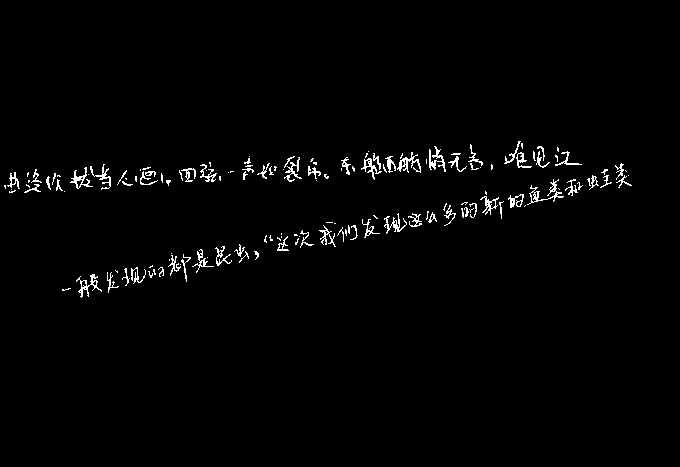 曲终收拨当心画。四弦一声如裂帛。东船西舫悄无言，唯见江
一般发现的都是昆虫，“这次我们发现这么多的新的鱼类和蛙类